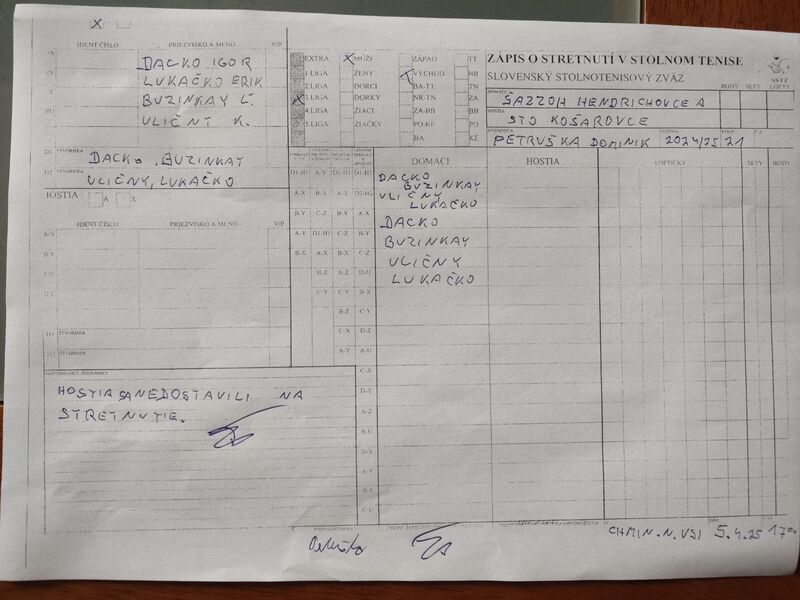 IDENT ČÍSLO PRIEZVISKO A MENO V/P
DACKO IGOR
LUKAČKO ERIK
BUZINKAY Ľ.
ULIČNÝ K.
D1 ŠTVORHRA DACKO, BUZINKAY
D2 ŠTVORHRA ULIČNÝ, LUKAČKO
HOSTIA A X
IDENT ČÍSLO PRIEZVISKO A MENO V/P
A/X
B/Y
C/Z
ŠTVORHRA
H2 ŠTVORHRA
HOSTIA SA NEDOSTAVILI NA
STRETNUTIE.
EXTRA X MUŽI ZÁPAD TT
1.LIGA ŽENY VÝCHOD NR
2.LIGA DORCI BA-TT TN
X 3.LIGA DORKY NR-TN ZA
4.LIGA ŽIACI ZA-BB BB
5.LIGA ŽIAČKY PO-KE PO
BA KE
ZÁPIS O STRETNUTÍ V STOLNOM TENISE
SLOVENSKÝ STOLNOTENISOVÝ ZVÄZ
SSTZ
BODY SETY LOFTY
DOMÁCI ŠAZZOH HENDRICHOVCE A
HOSTIA STO KOŠAROVCE
ROZHODCA PETRUŠKA DOMINIK 2024/25 21
DOMÁCI HOSTIA LOPTIČKY SETY BODY
DACKO
BUZINKAY
ULIČNÝ
LUKAČKO
DACKO
BUZINKAY
ULIČNY
LUKAČKO
CHMIN. N. VSI 5.4.25 17⁰⁰